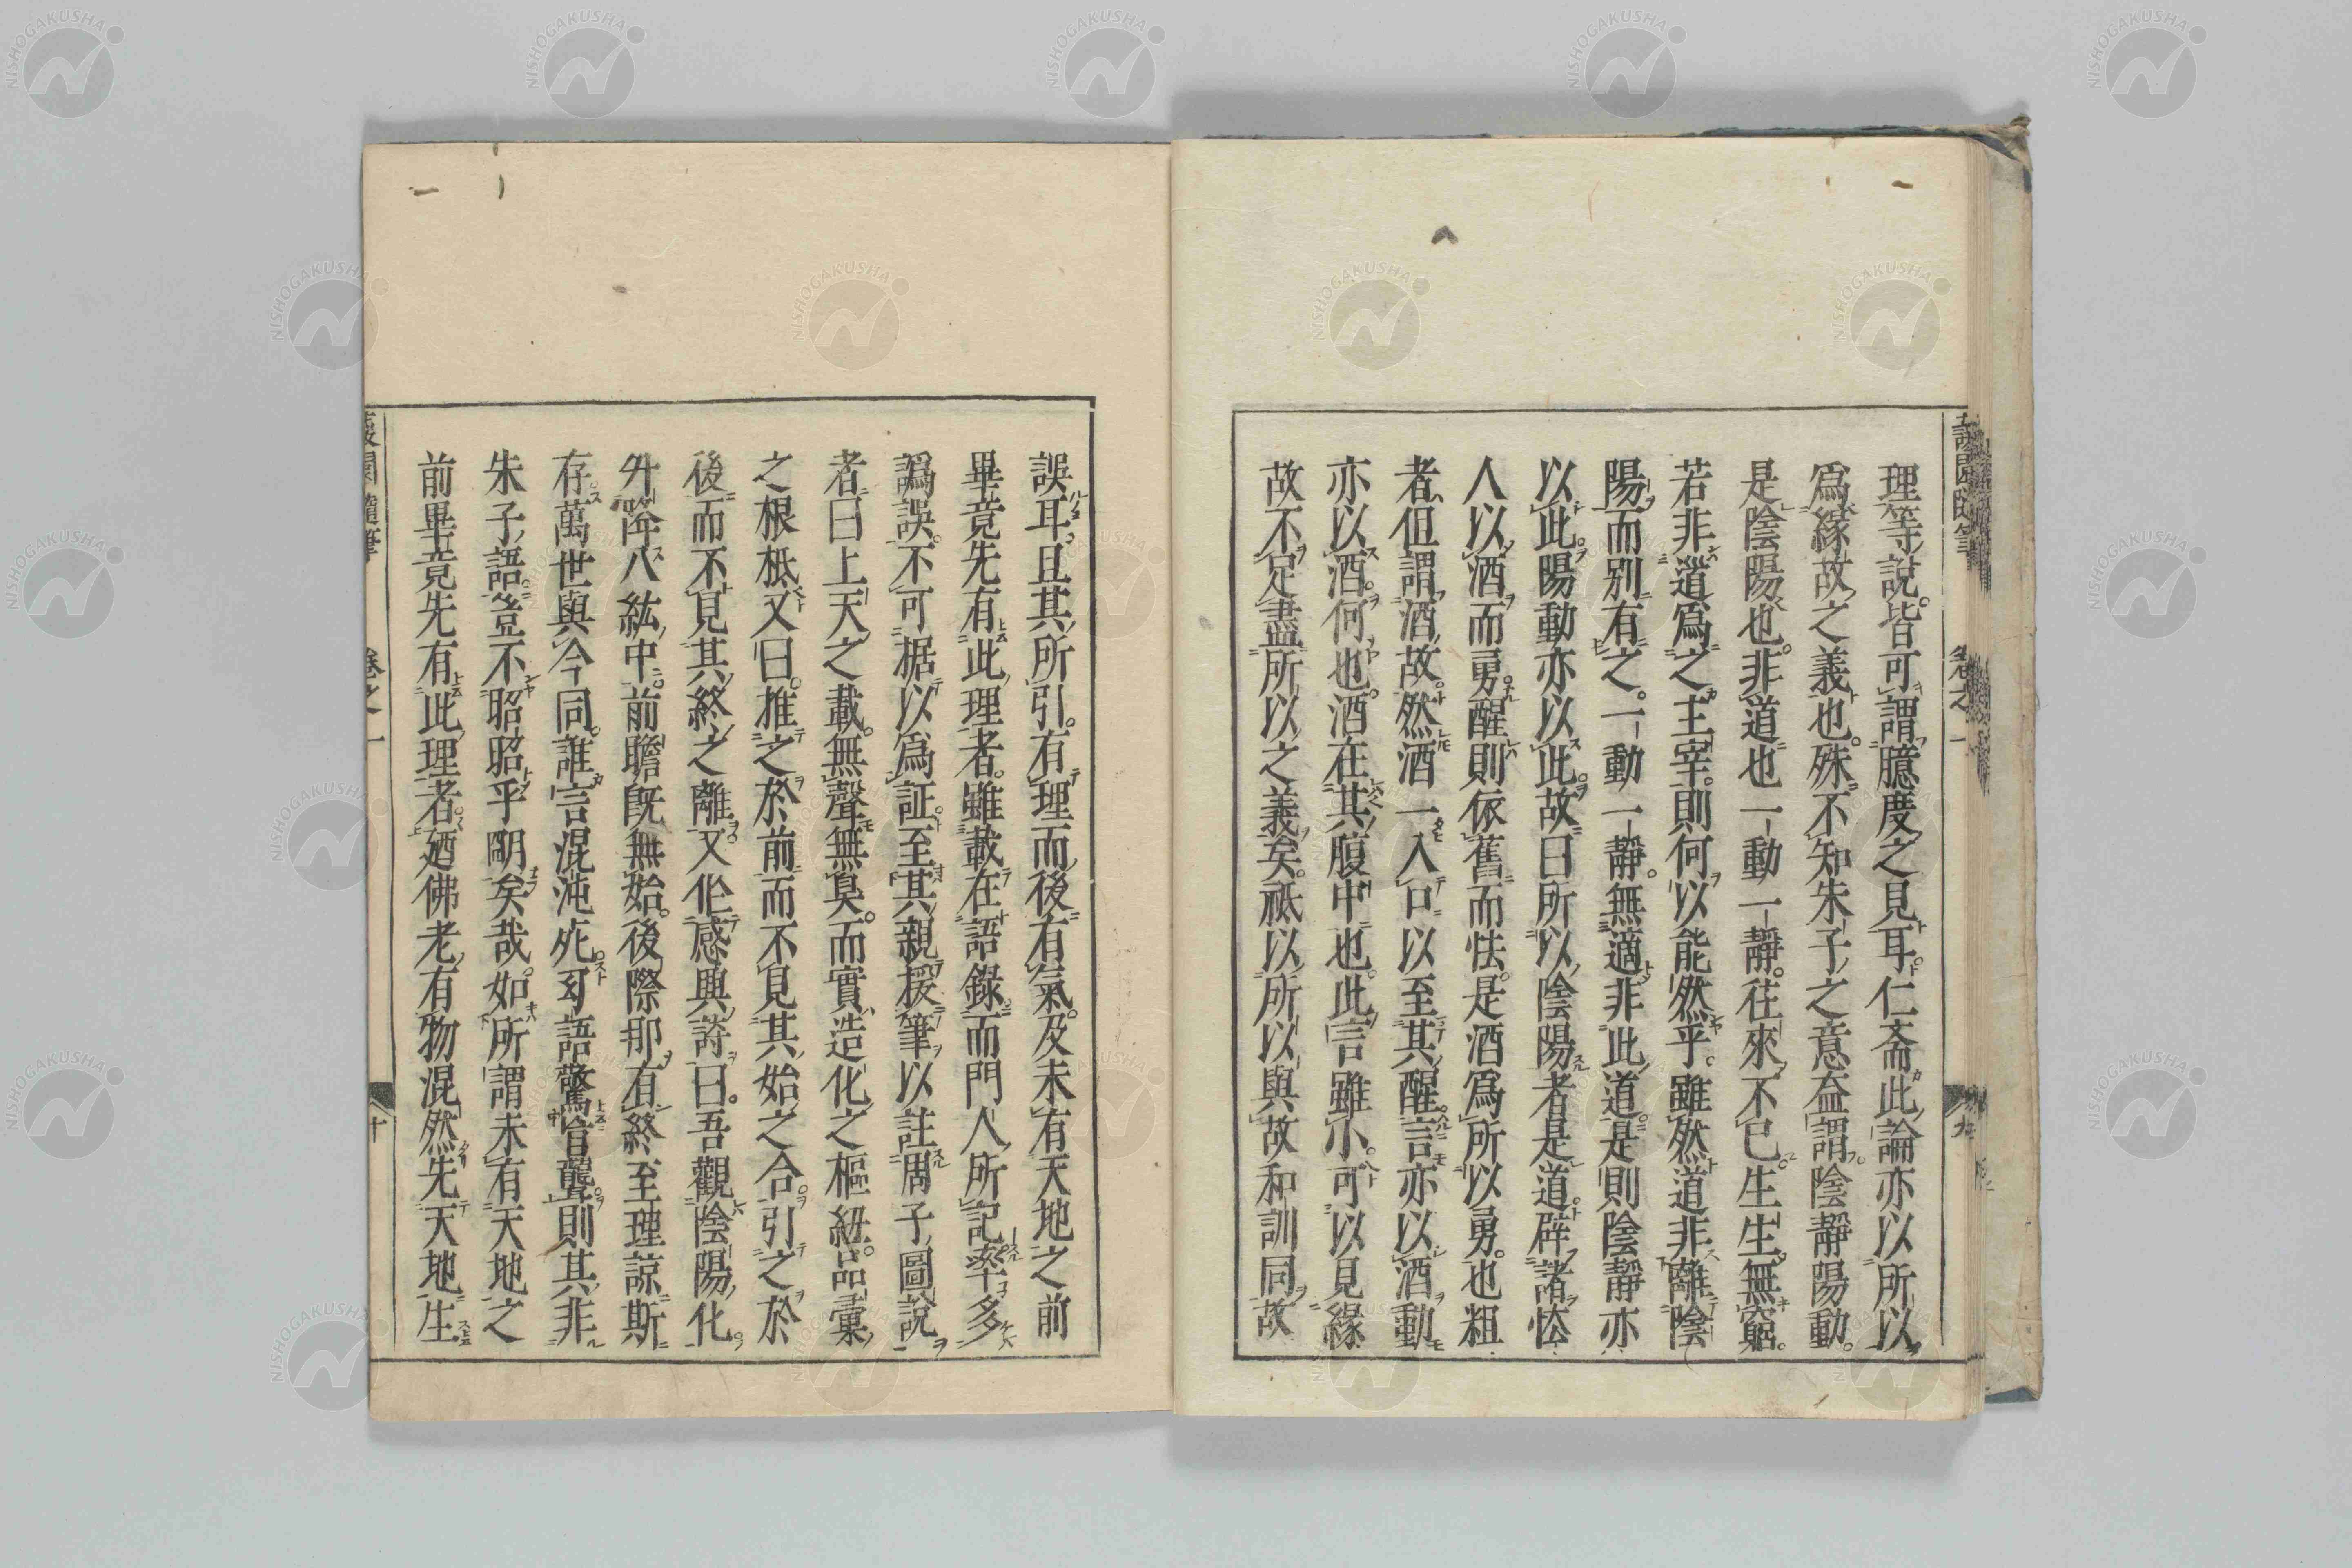 理等說皆可謂臆度之見耳仁斎此論亦以所以
爲緣故之義也殊不知朱子之意益謂陰靜陽動
是陰陽也非道也一動一靜往來不已生生無窮
若非道爲之主宰則何以能然乎雖然道非離陰
陽而別有之一動一靜無適非此道是則陰靜亦
以此陽動亦以此故曰所以陰陽者是道辟諸恠
人以酒而勇醒則依舊而怯是酒爲所以勇也粗
者但謂酒故然酒一入口以至其醒言亦以酒動
亦以酒何也酒在其腹中也此言雖小可以見緣
故不足盡所以之義矣祗以所以與故和訓同故
誤耳且其所引有理而後有氣及未有天地之前
畢竟先有此理者雖載在語錄而門人所記率多
譌誤不可据以爲証至其親援筆以註周子圖說
者曰上天之載無聲無臭而實造化之樞紐品彙
之根柢又曰推之於前而不見其始之合引之於
後而不見其終之離又佗感興詩曰吾觀陰陽化
升降八紘中前瞻旣無始後際那有終至理諒斯
存萬世與今同誰言混沌死幻語驚盲聾則其非
朱子語豈不昭昭乎朙矣哉如所謂未有天地之
前畢竟先有此理者廼佛老有物混然先天地生
蘐園隨筆 卷之一 十
卷之一 九
NISHOGAKUSHA